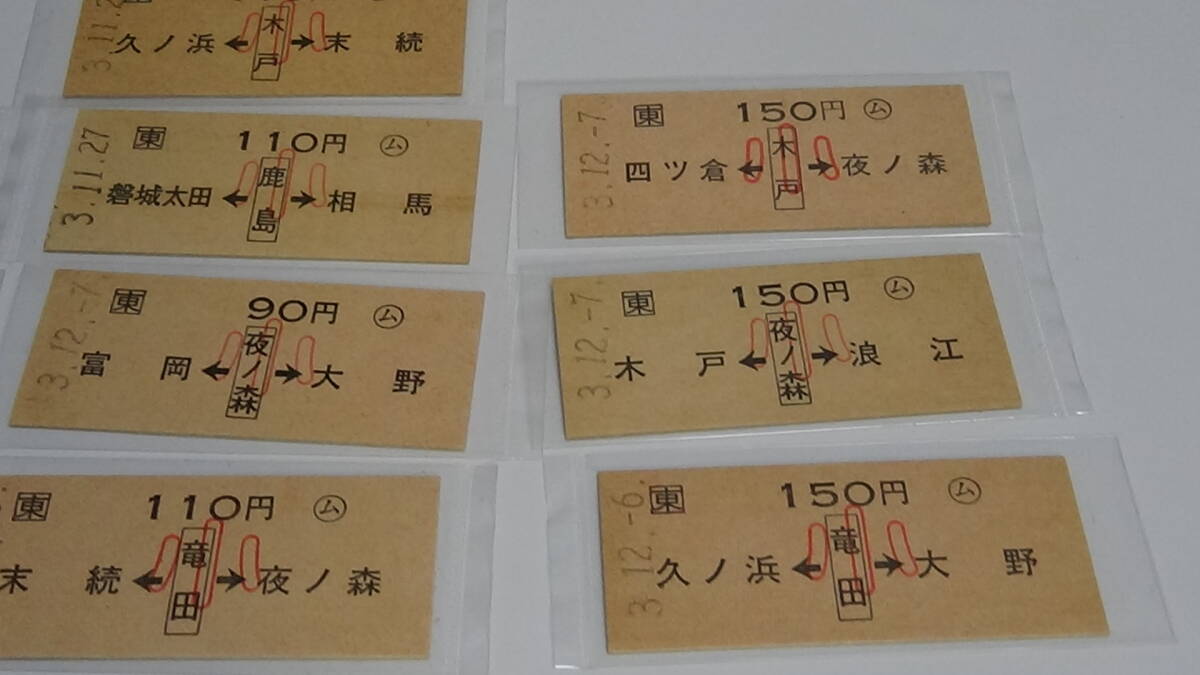 3.11.2
木戸
久ノ浜 ← → 末続
3.11.27
東 110円 ム
鹿島
磐城太田 ← → 相馬
3.12.-7
東 90円 ム
夜ノ森
富岡 ← → 大野
東 110円 ム
竜田
末続 ← → 夜ノ森
3.12.-7.
東 150円 ム
木戸
四ツ倉 ← → 夜ノ森
3.12.-7.
東 150円 ム
夜ノ森
木戸 ← → 浪江
3.12.-6.
東 150円 ム
竜田
久ノ浜 ← → 大野